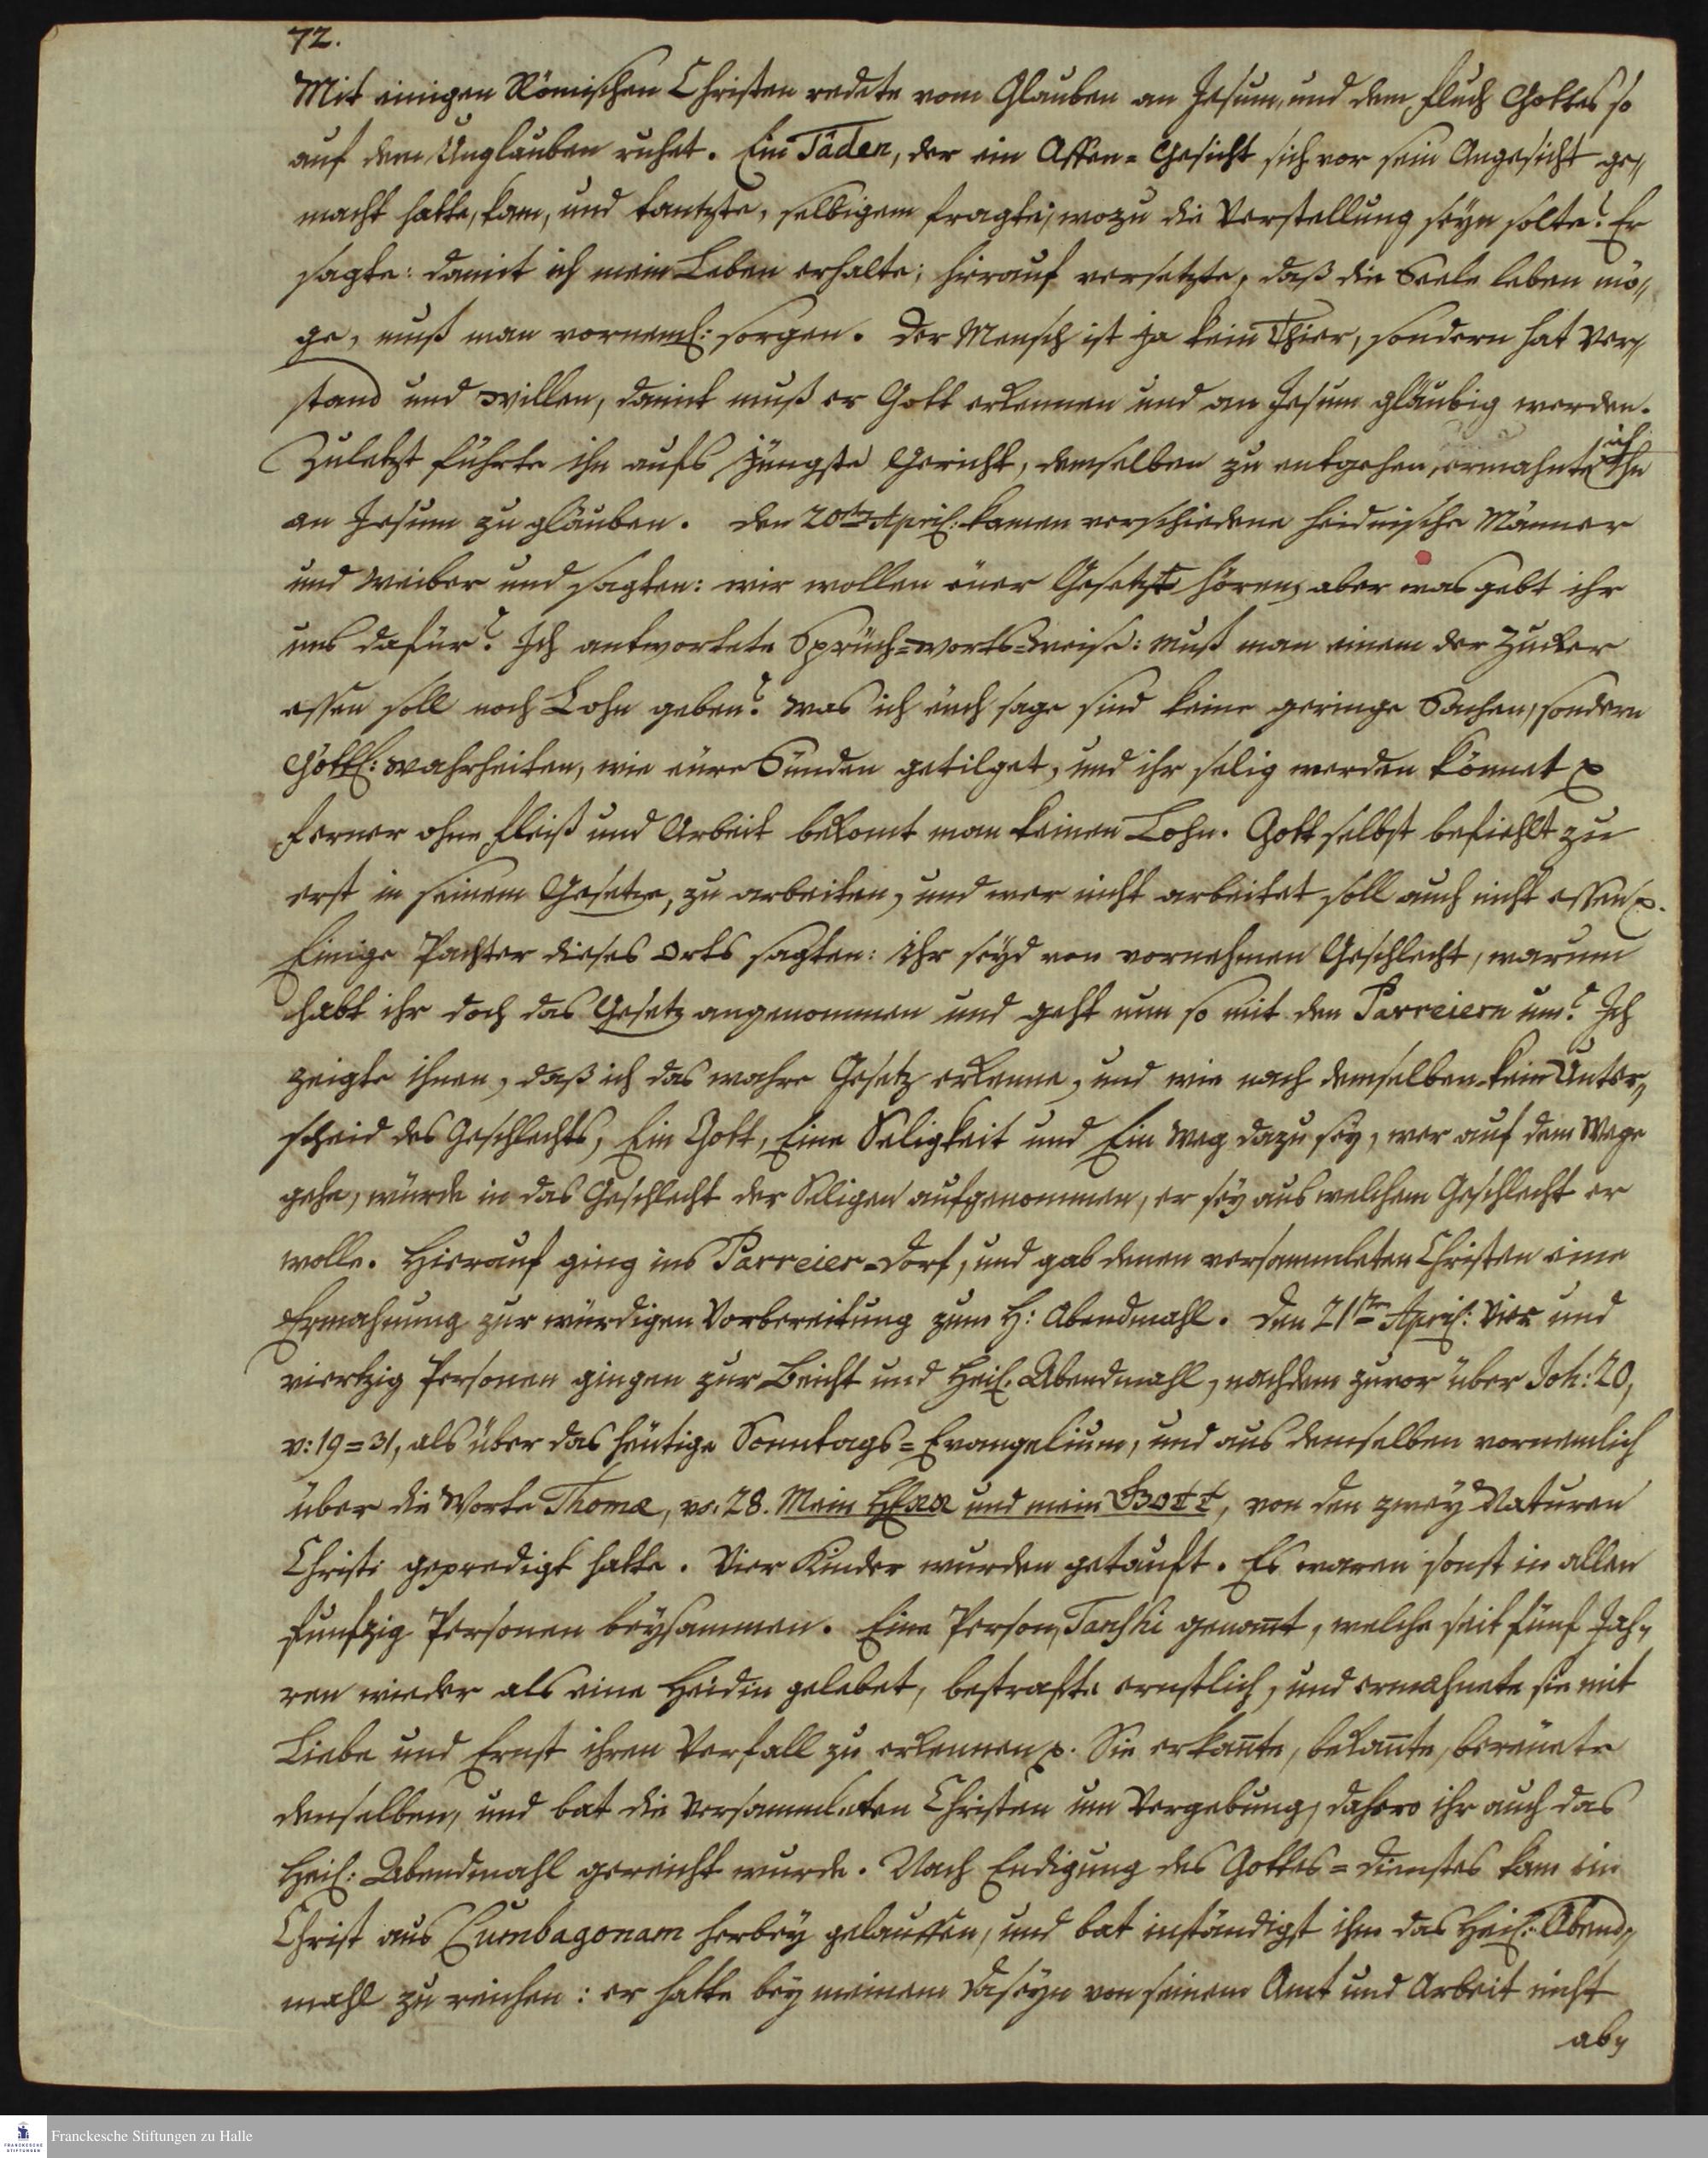 72.
Mit einigen Römischen Christen redete vom Glauben an Jesum, und dem Fluch Gottes so
auf dem Unglauben ruhet. Ein Täden, der ein Affen=Gesicht sich vor sein Angesicht ge„
macht hatte, kam, und tantzte, selbigem fragte, wozu die Verstellung seyn solte? Er
sagte: damit ich mein Leben erhalte; hierauf versetzte, daß die Seele leben mö„
ge, muß man vorneml: sorgen. Der Mensch ist ja kein Thier, sondern hat Ver„
stand und Willen, damit muß er Gott erkennen und an Jesum gläubig werden.
Zuletzt führte ihn aufs jüngste Gericht, demselben zu entgehen, ermahnte ich ihn
an Jesum zu gläuben. Den 20ten April: kamen verschiedene heidnische Männer
und Weiber und sagten: wir wollen euer Gesetz hören, aber was gebt ihr
uns dafür? Ich antwortete Sprüch=worts=weise: Muß man einem der Zucker
essen soll noch Lohn geben? Was ich euch sage sind keine geringe Sachen, sondern
Göttl: Wahrheiten, wie eure Sünden getilget, und ihr selig werden könnet p
ferner ohne Fleiß und Arbeit bekomt man keinen Lohn. Gott selbst befiehlt zu
erst in seinem Gesetze, zu arbeiten, und wer nicht arbeitet soll auch nicht essen p.
Einige Pachter dieses Orts sagten: ihr seyd von vornehmen Geschlecht, warum
habt ihr doch das Gesetz angenommen und geht nun so mit den Parreiern um? Ich
zeigte ihnen, daß ich das wahre Gesetz erkenne, und wie nach demselben kein Unter„
scheid des Geschlechts, Ein Gott, Eine Seligkeit und Ein Weg dazu sey, wer auf dem Wege
gehe, würde in das Geschlecht der Seligen aufgenommen, er sey aus welchem Geschlecht er
wolle. Hierauf ging ins Parreier=Dorf, und gab denen versammleten Christen eine
Ermahnung zur würdigen Vorbereitung zum H: Abendmahl. Den 21ten April: Vier und
viertzig Personen gingen zur Beicht und Heil. Abendmahl, nachdem zuvor über Joh: 20,
v: 19=31, als über das heutige Sonntags=Evangelium, und aus demselben vornemlich
über die Worte Thomæ, vs: 28. Mein HErr und mein Gott, von den zwey Naturen
Christi gepredigt hatte. Vier Kinder wurden getauft. Es waren sonst in allen
funfzig Personen beysammen. Eine Person, genant, welche seit fünf Jah„
ren wieder als eine Heidin gelebet, bestrafte ernstlich, und ermahnete sie mit
Liebe und Ernst ihren Verfall zu erkennen p. Sie erkante, bekante, bereuete
denselben, und bat die versammleten Christen um Vergebung, dahero ihr auch das
Heil: Abendmahl gereicht wurde. Nach Endigung des Gottes=dienstes kam ein
Christ aus Cumbagonam herbey gelauffen, und bat inständigst ihm das Heil: Abend„
mahl zu reichen: er hatte bey meinem Daseyn von seinem Amt und Arbeit nicht
ab„
Franckesche Stiftungen zu Halle